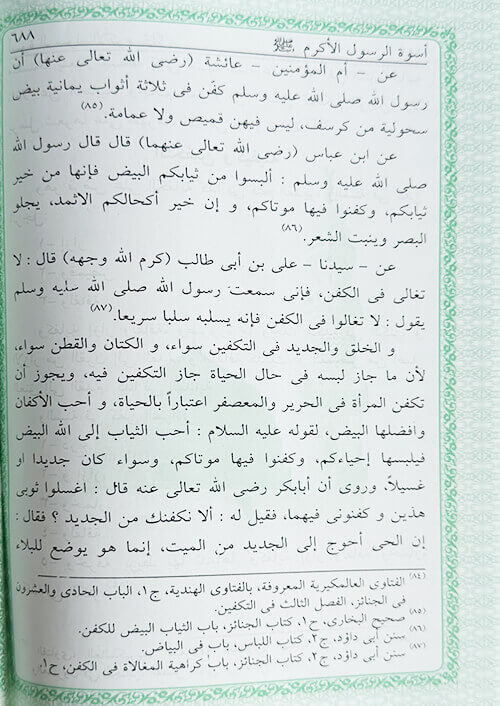 أسوة الرسول الأكرم ﷺ ٦٨٨
عن - أم المؤمنين - عائشة (رضى الله تعالى عنها) أن
رسول الله صلى الله عليه وسلم كفّن فى ثلاثة أثواب يمانية بيض
سحولية من كرسف، ليس فيهن قميص ولا عمامة.(٨٥)
عن ابن عباس (رضى الله تعالى عنهما) قال قال رسول الله
صلى الله عليه وسلم : ألبسوا من ثيابكم البيض فإنها من خير
ثيابكم، وكفنوا فيها موتاكم، و إن خير أكحالكم الاثمد، يجلو
البصر وينبت الشعر.(٨٦)
عن - سيدنا - على بن أبى طالب (كرم الله وجهه) قال : لا
تغالى فى الكفن، فإنى سمعت رسول الله صلى الله عليه وسلم
يقول : لا تغالوا فى الكفن فإنه يسلبه سلبا سريعا.(٨٧)
و الخلق والجديد فى التكفين سواء، و الكتان والقطن سواء،
لأن ما جاز لبسه فى حال الحياة جاز التكفين فيه، ويجوز أن
تكفن المرأة فى الحرير والمعصفر اعتباراً بالحياة، و أحب الأكفان
وافضلها البيض، لقوله عليه السلام : أحب الثياب إلى الله البيض
فيلبسها إحياءكم، وكفنوا فيها موتاكم، وسواء كان جديدا او
غسيلاً. وروى أن أبابكر رضى الله تعالى عنه قال : اغسلوا ثوبى
هذين و كفنونى فيهما، فقيل له : ألا نكفنك من الجديد ؟ فقال :
إن الحى أحوج إلى الجديد من الميت، إنما هو يوضع للبلاء
(٨٤) الفتاوى العالمكيرية المعروفة، بالفتاوى الهندية، ج١، الباب الحادى والعشرون
فى الجنائز، الفصل الثالث فى التكفين.
(٨٥) صحيح البخارى، ح١، كتاب الجنائز، باب الثياب البيض للكفن.
(٨٦) سنن أبى داؤد، ج٢، كتاب اللباس، باب فى البياض.
(٨٧) سنن أبى داؤد، ج٢، كتاب الجنائز، باب كراهية المغالاة فى الكفن، ح١.